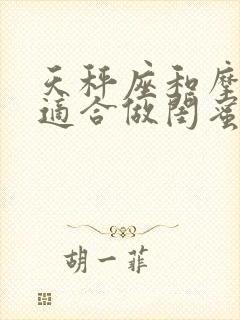 天秤座和摩
适合做閨蜜
胡一菲